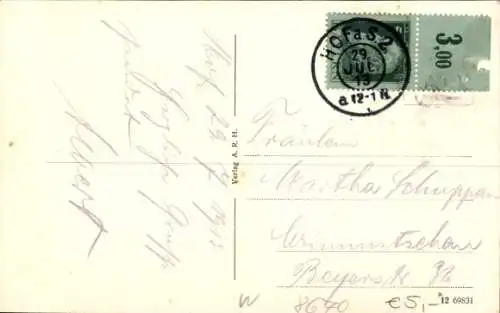 Hof, 29.
Herzliche Grüße
sendet
HOF a. S. 2
29
JUL
13
a. 12-1 N.
3,00
Verlag A. R. H.
Fräulein
Martha Schuppan
Crimmitschau
Beyers
W 8670 €5,-
12 69831